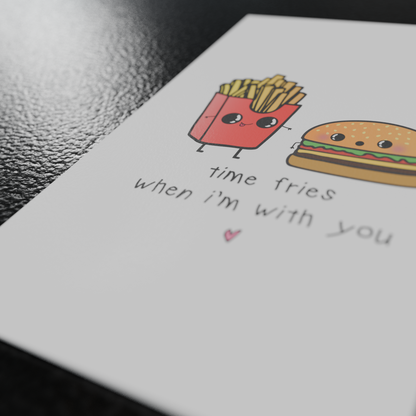 time fries
when i'm with you